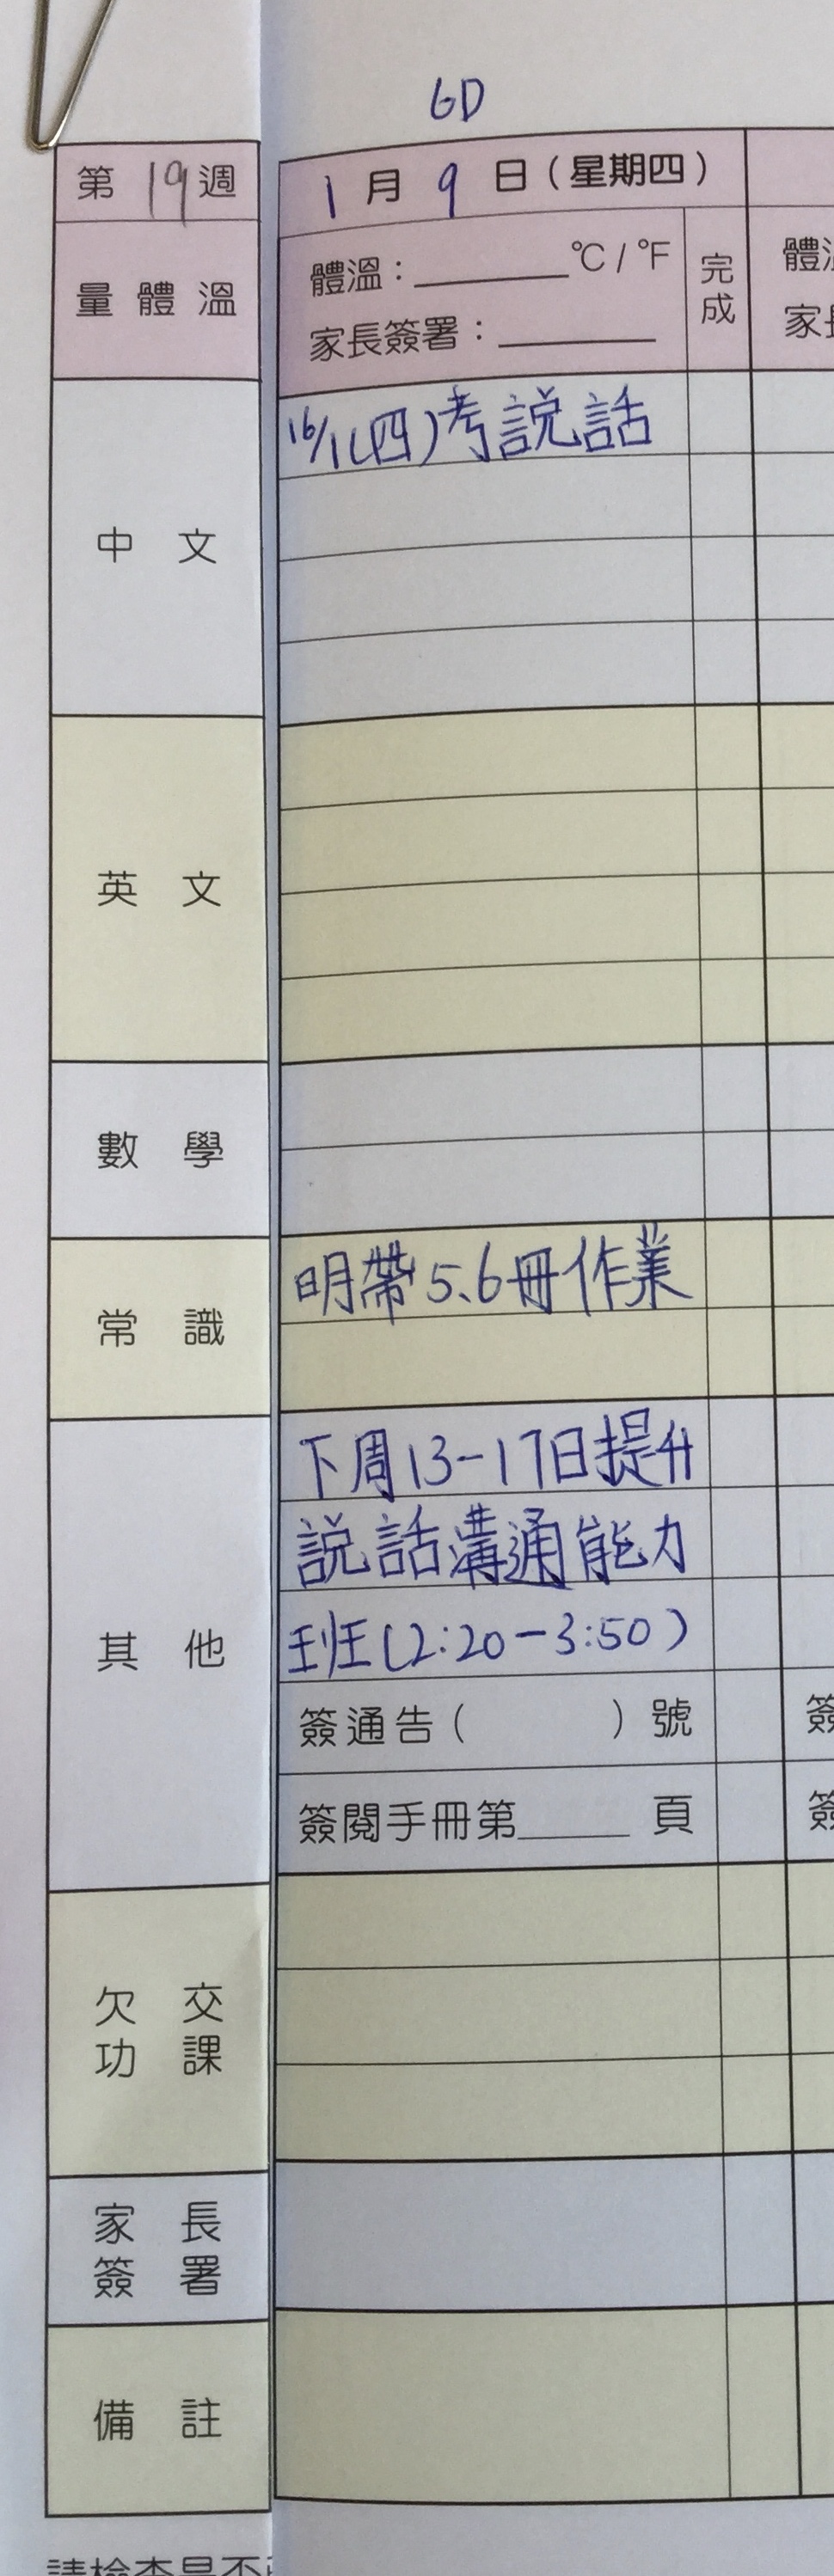 6D
第19週
1月9日（星期四）
量體溫
體溫：______°C / °F
家長簽署：______
完成
體
家
中文
16/1(四)考說話
英文
數學
常識
明帶5、6冊作業
其他
下周13-17日提升
說話溝通能力
班(2:20-3:50)
簽通告（ ）號
簽
簽閱手冊第______頁
簽
欠交
功課
家長
簽署
備註
請檢查是否